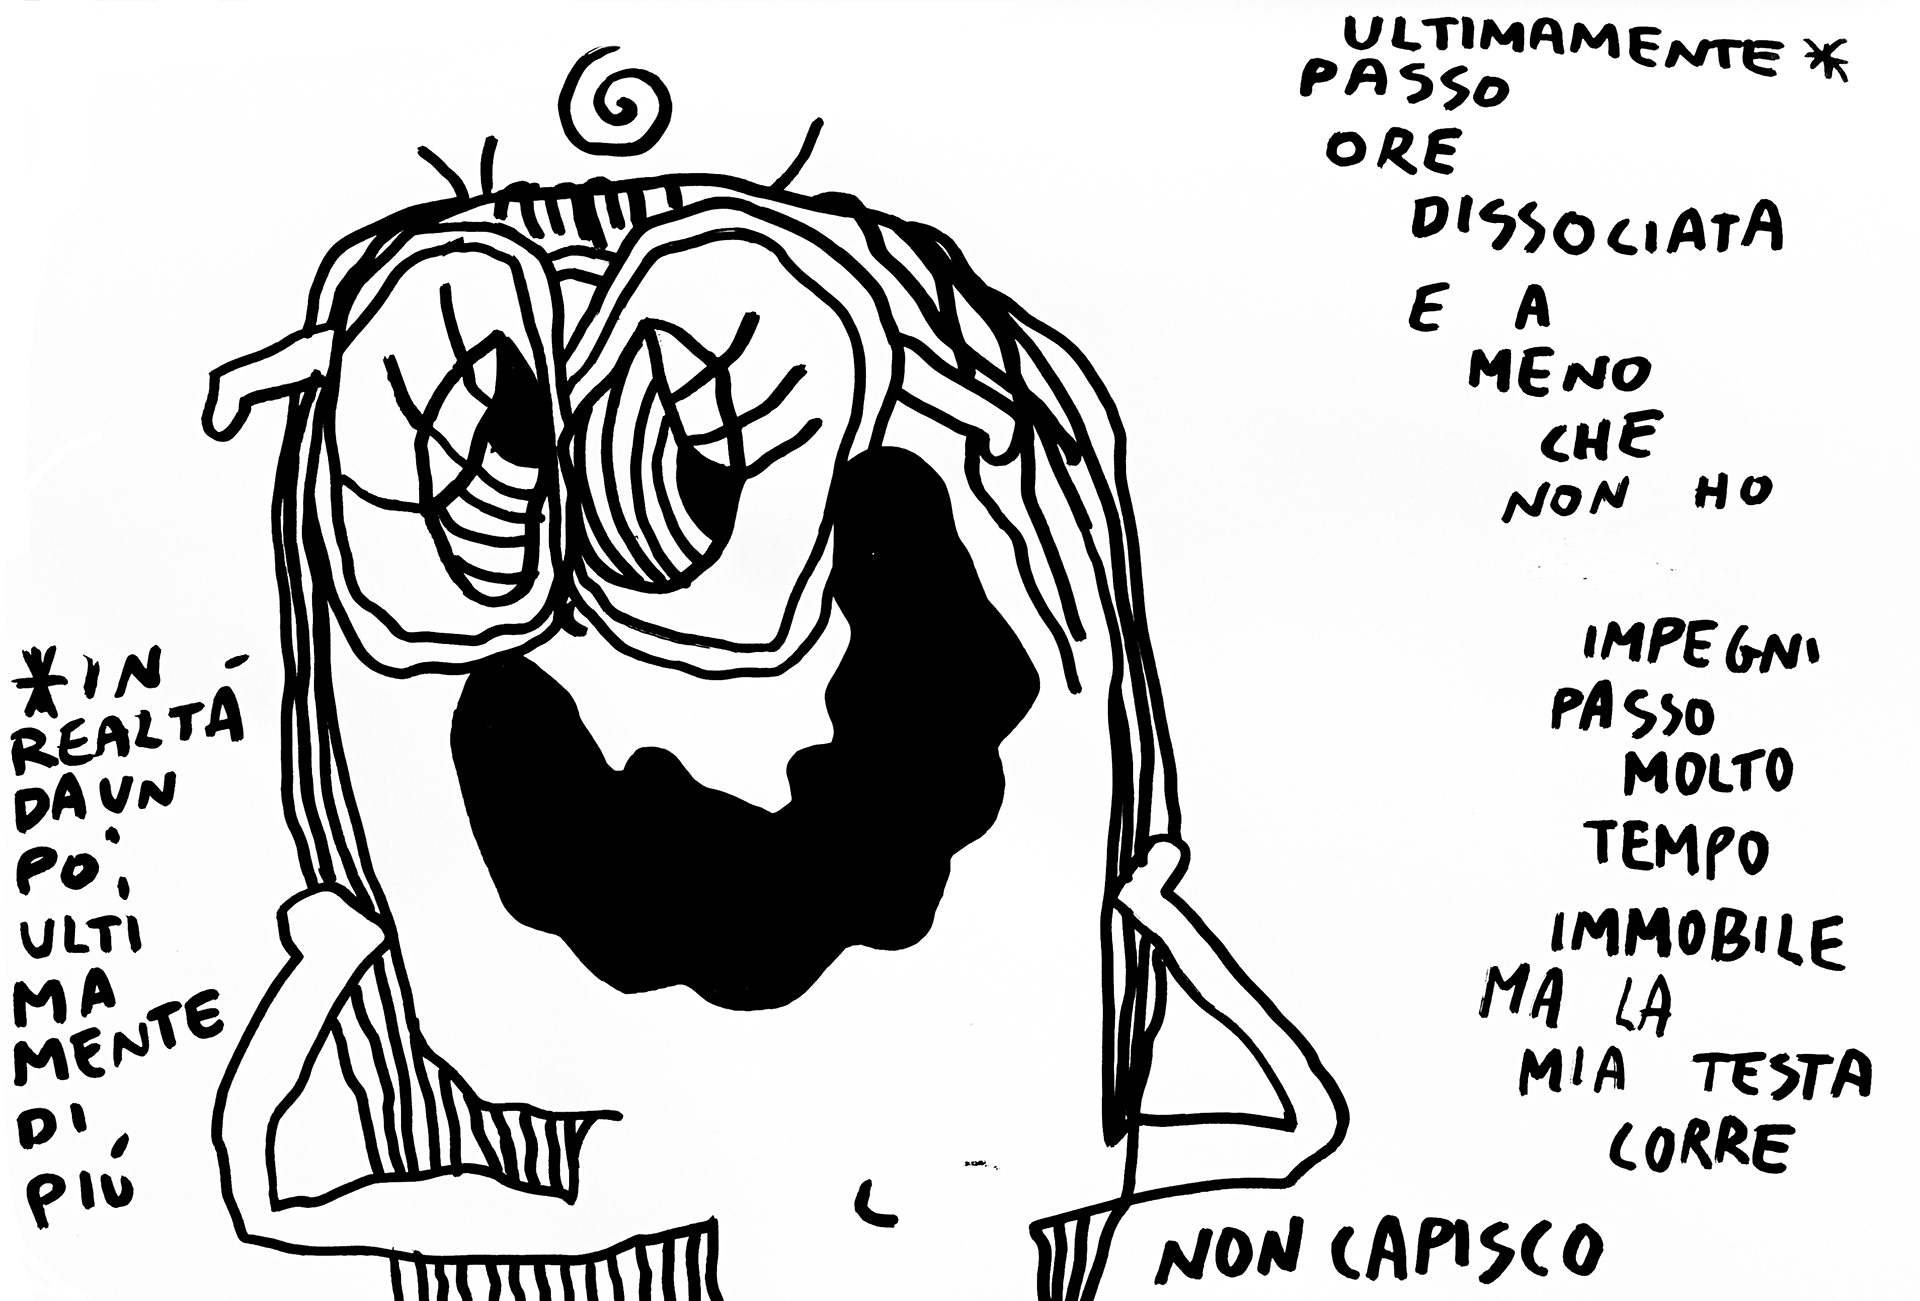 ULTIMAMENTE *
PASSO
ORE
DISSOCIATA
E A
MENO
CHE
NON HO
IMPEGNI
PASSO
MOLTO
TEMPO
IMMOBILE
MA LA
MIA TESTA
CORRE
NON CAPISCO
* IN
REALTÁ
DA UN
PO',
ULTI
MA
MENTE
DI
PIÚ